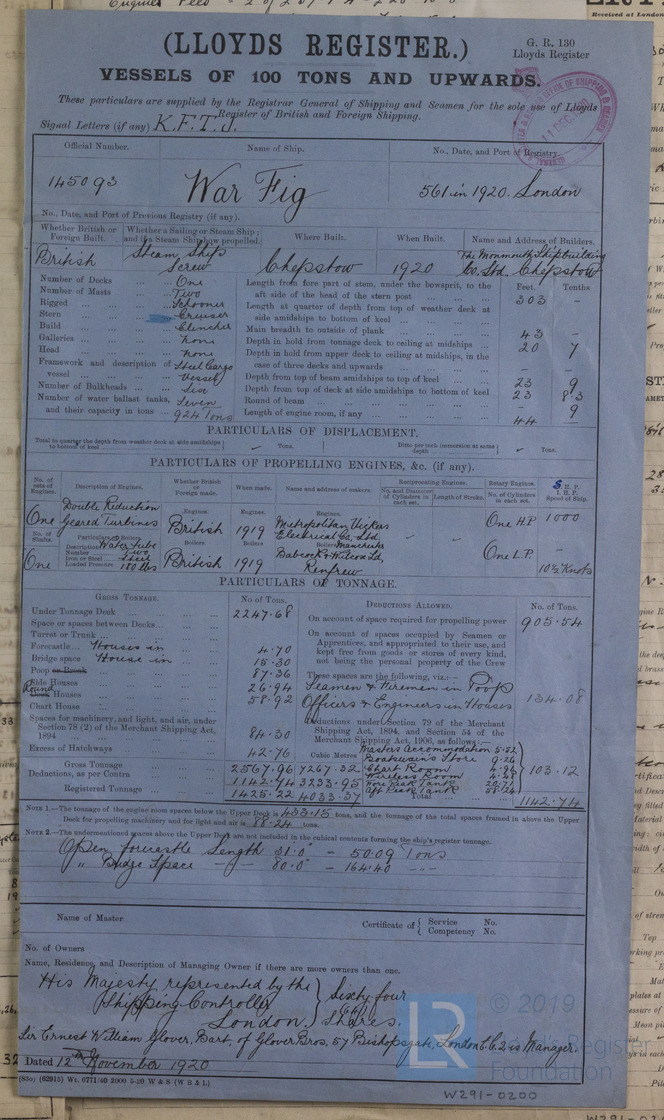 (LLOYDS REGISTER.)
G. R. 130
Lloyds Register
VESSELS OF 100 TONS AND UPWARDS.
These particulars are supplied by the Registrar General of Shipping and Seamen for the sole use of Lloyds
Register of British and Foreign Shipping.
Signal Letters (if any) K.F.T.J.
Official Number. Name of Ship. No., Date, and Port of Registry.
145093 War Fig 561 in 1920. London
No., Date, and Port of Previous Registry (if any).
Whether British or Foreign Built. Whether a Sailing or Steam Ship; and if a Steam Ship how propelled. Where Built. When Built. Name and Address of Builders.
British Steam Ship Screw Chepstow 1920 The Monmouth Shipbuilding Co. Ltd. Chepstow
Number of Decks One Length from fore part of stem, under the bowsprit, to the aft side of the head of the stern post Feet. Tenths
303 -
Number of Masts Two
Rigged Schooner Length at quarter of depth from top of weather deck at side amidships to bottom of keel
Stern Cruiser
Build Clencher Main breadth to outside of plank 43 -
Galleries none Depth in hold from tonnage deck to ceiling at midships 20 7
Head none Depth in hold from upper deck to ceiling at midships, in the case of three decks and upwards - -
Framework and description of vessel Steel Cargo Vessel
Depth from top of beam amidships to top of keel 23 9
Number of Bulkheads Six Depth from top of deck at side amidships to bottom of keel 23 8·3
Number of water ballast tanks, and their capacity in tons Seven 924 Tons
Round of beam 9
Length of engine room, if any 44 -
PARTICULARS OF DISPLACEMENT.
Total to quarter the depth from weather deck at side amidships to bottom of keel Tons. Ditto per inch immersion at same depth Tons.
PARTICULARS OF PROPELLING ENGINES, &c. (if any).
No. of sets of Engines. Description of Engines. Whether British or Foreign made. When made. Name and address of makers. Reciprocating Engines. Rotary Engines.
No. and Diameter of Cylinders in each set. Length of Stroke. No. of Cylinders in each set. S.H.P. I.H.P. Speed of Ship.
One Double Reduction Geared Turbines Engines. British Engines. 1919 Engines. Metropolitan Vickers Electrical Co. Ltd. Manchester One H.P 1000
No. of Shafts. Particulars of Boilers.
One Description Water tube Number Two Iron or Steel Steel Loaded Pressure 180 lbs Boilers British Boilers 1919 Boilers Babcock & Wilcox Ld. Renfrew One L.P. 10½ Knots
PARTICULARS OF TONNAGE.
GROSS TONNAGE. No. of Tons. DEDUCTIONS ALLOWED. No. of Tons.
Under Tonnage Deck 2247·68 On account of space required for propelling power 905·54
Space or spaces between Decks
Turret or Trunk
Forecastle Houses in 4·70
Bridge space House in 15·30
Poop or Break 87·36
Side Houses 26·94
Round Deck Houses 58·92
Chart House
Spaces for machinery, and light, and air, under Section 78 (2) of the Merchant Shipping Act, 1894 84·30
Excess of Hatchways 42·76
On account of spaces occupied by Seamen or Apprentices, and appropriated to their use, and kept free from goods or stores of every kind, not being the personal property of the Crew
These spaces are the following, viz.:—
Seamen & Firemen in Poop
Officers & Engineers in Houses 134·08
Deductions under Section 79 of the Merchant Shipping Act, 1894, and Section 54 of the Merchant Shipping Act, 1906, as follows:—
Masters Accommodation 5·52
Boatswain's Store 9·26
Chart Room
Wireless Room
Fore Peak Tank
Aft Peak Tank 58·24
103·12
Cubic Metres
Gross Tonnage 2567·96 7267·32
Deductions, as per Contra 1142·74 3233·95
Registered Tonnage 1425·22 4033·37 Total 1142·74
NOTE 1.—The tonnage of the engine room spaces below the Upper Deck is 433·15 tons, and the tonnage of the total spaces framed in above the Upper
Deck for propelling machinery and for light and air is 88·24 tons.
NOTE 2.—The undermentioned spaces above the Upper Deck are not included in the cubical contents forming the ship's register tonnage.
Open forecastle Length 31·0' = 50·09 Tons
" Bridge Space — 80·0' = 164·40 —
Name of Master Certificate of { Service No. Competency No.
No. of Owners
Name, Residence, and Description of Managing Owner if there are more owners than one.
His Majesty represented by the
Shipping Controller
London
Sixty four Shares.
Sir Ernest William Glover, Bart. of Glover Bros, 57 Bishopsgate, London E.C.2 is Manager.
Dated 12th November 1920
(85o) (62915) Wt. 6771/40 2000 5-20 W & S (W B & L)
LR
© 2019
Register
Foundation
W291-0200